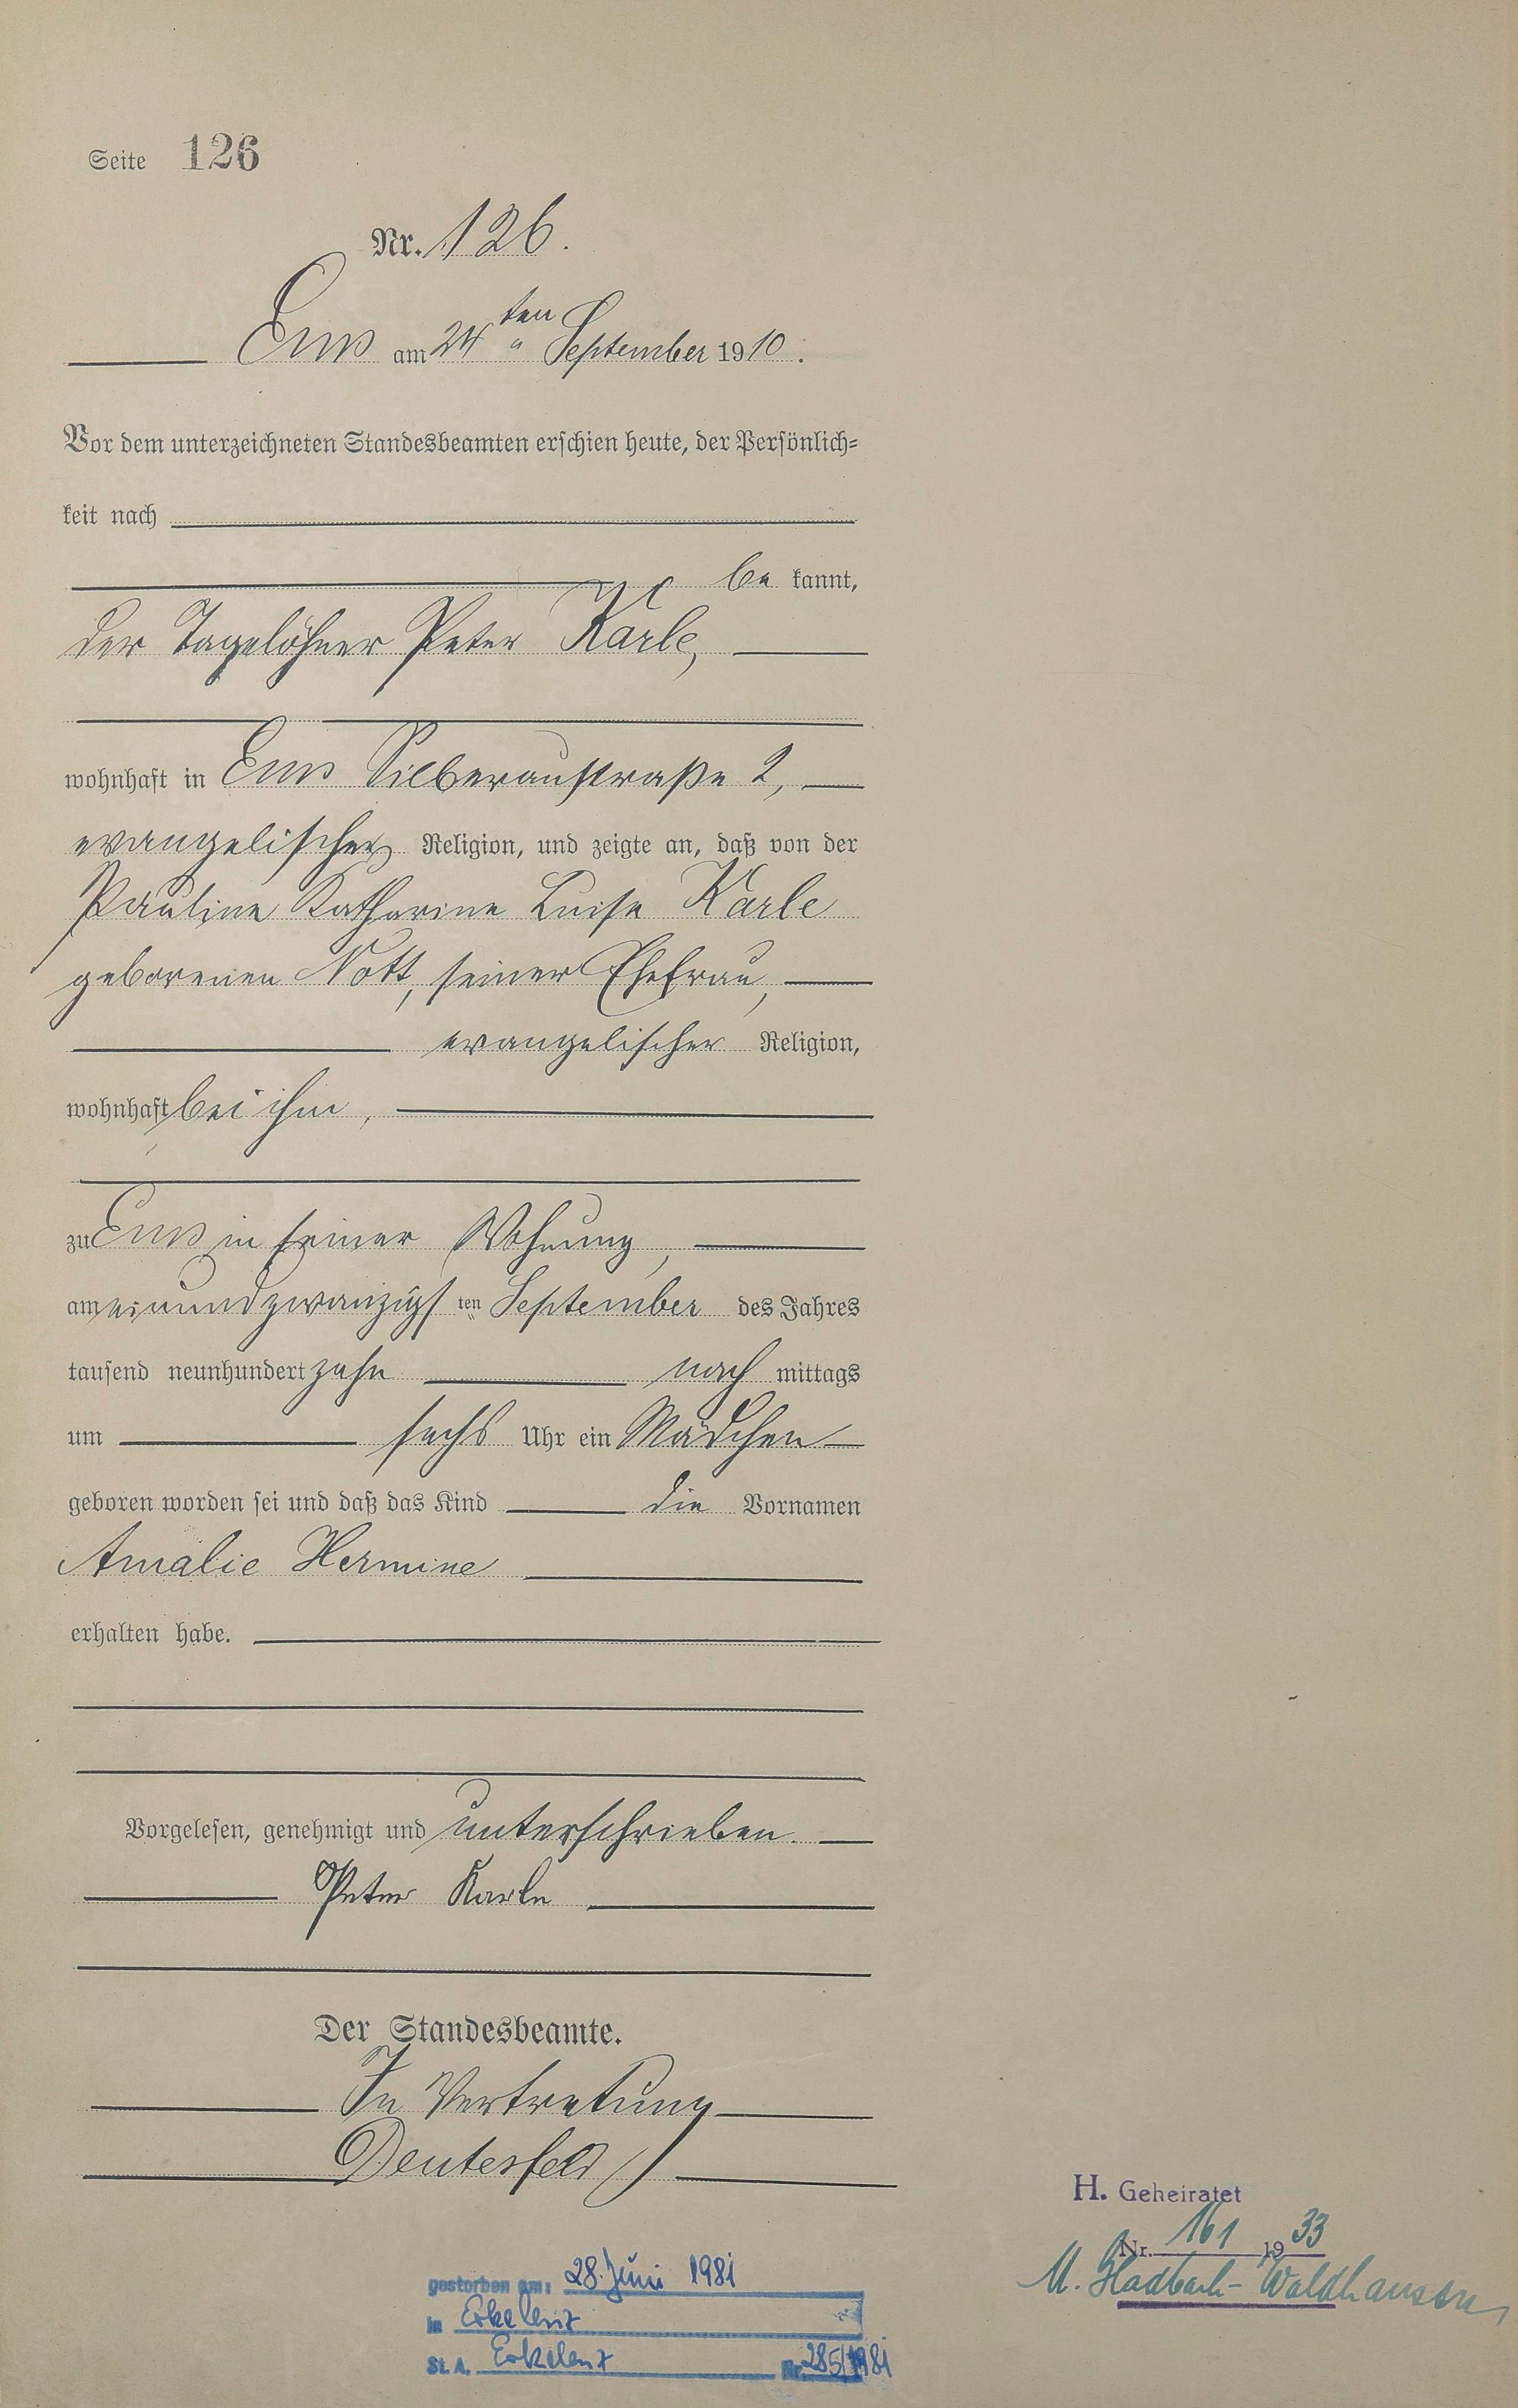 Seite 126
Nr. 126.
Ems am 24 ten September 1910.
Vor dem unterzeichneten Standesbeamten erschien heute, der Persönlich=
keit nach
be kannt,
der Tagelöhner Peter Karle,
wohnhaft in Ems Silberaustraße 2,
evangelischer Religion, und zeigte an, daß von der
Pauline Katharine Luise Karle
geborenen Nott, seiner Ehefrau,
evangelischer Religion,
wohnhaft bei ihm,
zu Ems in seiner Wohnung,
am einundzwanzigs ten September des Jahres
tausend neunhundert zehn nach mittags
um sechs Uhr ein Mädchen
geboren worden sei und daß das Kind die Vornamen
Amalie Hermine
erhalten habe.
Vorgelesen, genehmigt und unterschrieben.
Peter Karle
Der Standesbeamte.
In Vertretung
Deutesfeld
H. Geheiratet
Nr. 161 1933
M. Gladbach-Waldhausen
gestorben am: 28. Juni 1981
in Erkelenz
St. A. Erkelenz Nr. 285/1981